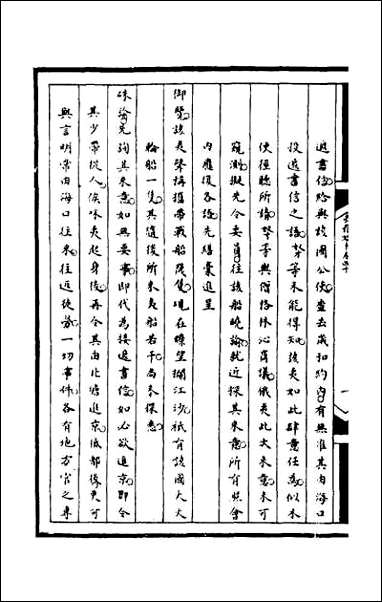 遞書信給與該國公使查去歲扣約內有無准其由海口
投遞書信之議等未能得知該夷如此肆意任為似未
便徑聽所請等與僧格林沁籌議俄夷此次來意未可
窺測擬先令委員往該船曉諭就近探其來意所有照會
內應復各語先繕稾進呈
御覽該夷聲稱攜帶戰船幾隻現在瞭望攔江沙祇有該國大火
輪船一隻其隨後所來夷船若干尚未探悉
硃諭先詢其來意如無要事即代為接遞書信如必欲進京即令
其少帶從人俟咪夷起身後再令其由北塘進京抵都後更可
與言明常由海口往來往返徒勞一切事件各有地方官之專